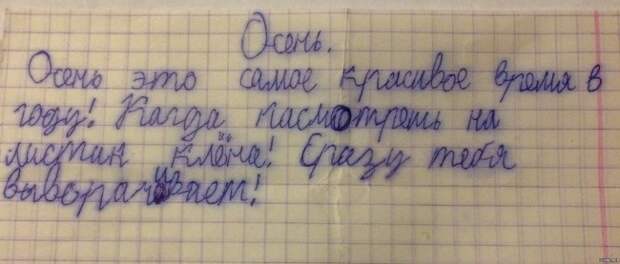 Осень.
Осень это самое красивое время в
году! Кагда пасмотреть на
листик клёна! Сразу тебя
выворачивает!